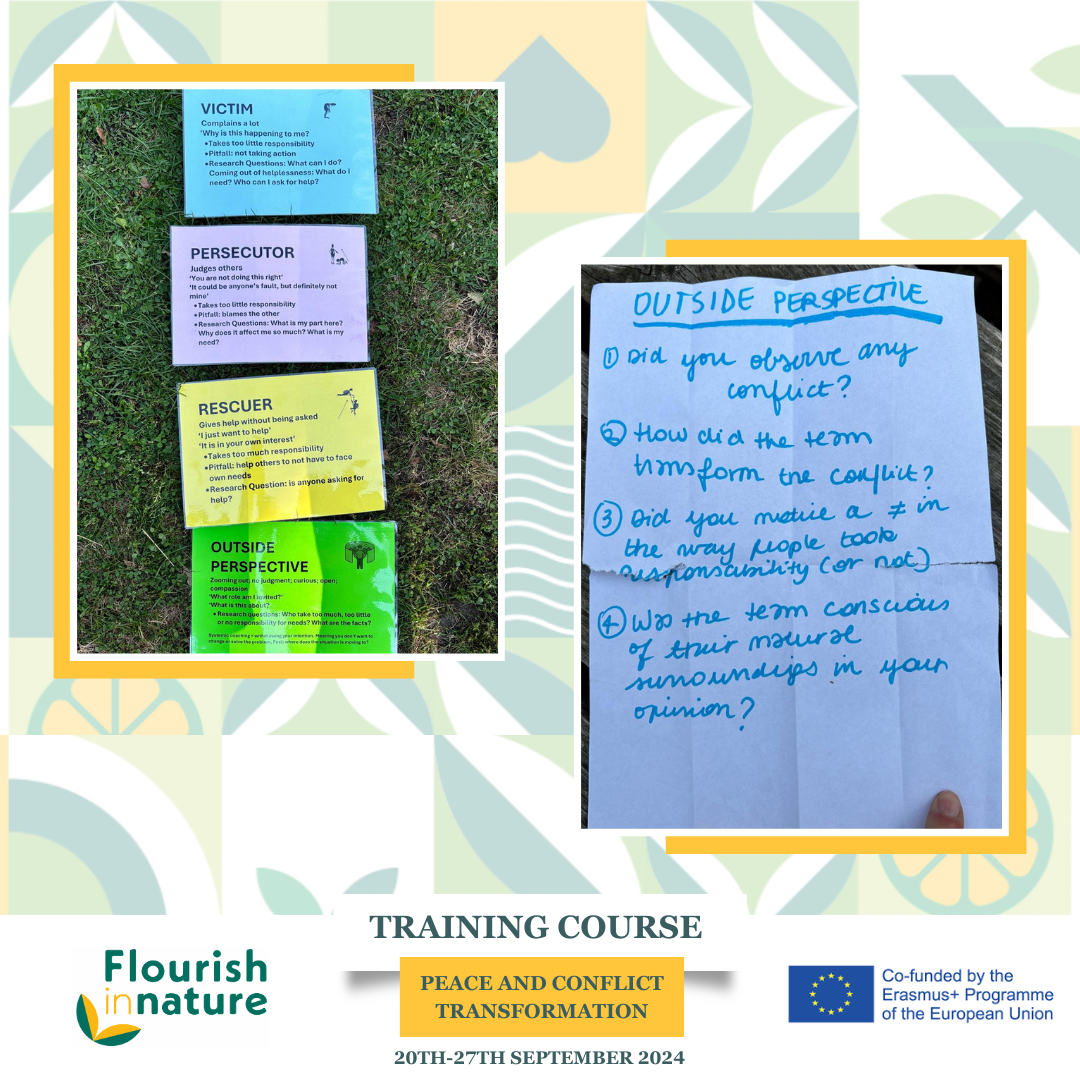 VICTIM
Complains a lot
'Why is this happening to me?
•Takes too little responsibility
•Pitfall: not taking action
•Research Questions: What can I do?
Coming out of helplessness: What do I
need? Who can I ask for help?
PERSECUTOR
Judges others
'You are not doing this right'
'It could be anyone's fault, but definitely not
mine'
•Takes too little responsibility
•Pitfall: blames the other
•Research Questions: What is my part here?
Why does it affect me so much? What is my
need?
RESCUER
Gives help without being asked
'I just want to help'
'It is in your own interest'
•Takes too much responsibility
•Pitfall: help others to not have to face
own needs
•Research Question: is anyone asking for
help?
OUTSIDE
PERSPECTIVE
Zooming out; no judgment; curious; open;
compassion
'What role am I invited?'
'What is this about?'
•Research questions: Who take too much, too little
or no responsibility for needs? What are the facts?
OUTSIDE PERSPECTIVE
① Did you observe any
conflict?
② How did the team
transform the conflict?
③ Did you notice a ≠ in
the way people took
responsibility (or not)
④ Was the team conscious
of their natural
surroundings in your
opinion?
TRAINING COURSE
PEACE AND CONFLICT
TRANSFORMATION
20TH-27TH SEPTEMBER 2024
Flourish
innature
Co-funded by the
Erasmus+ Programme
of the European Union